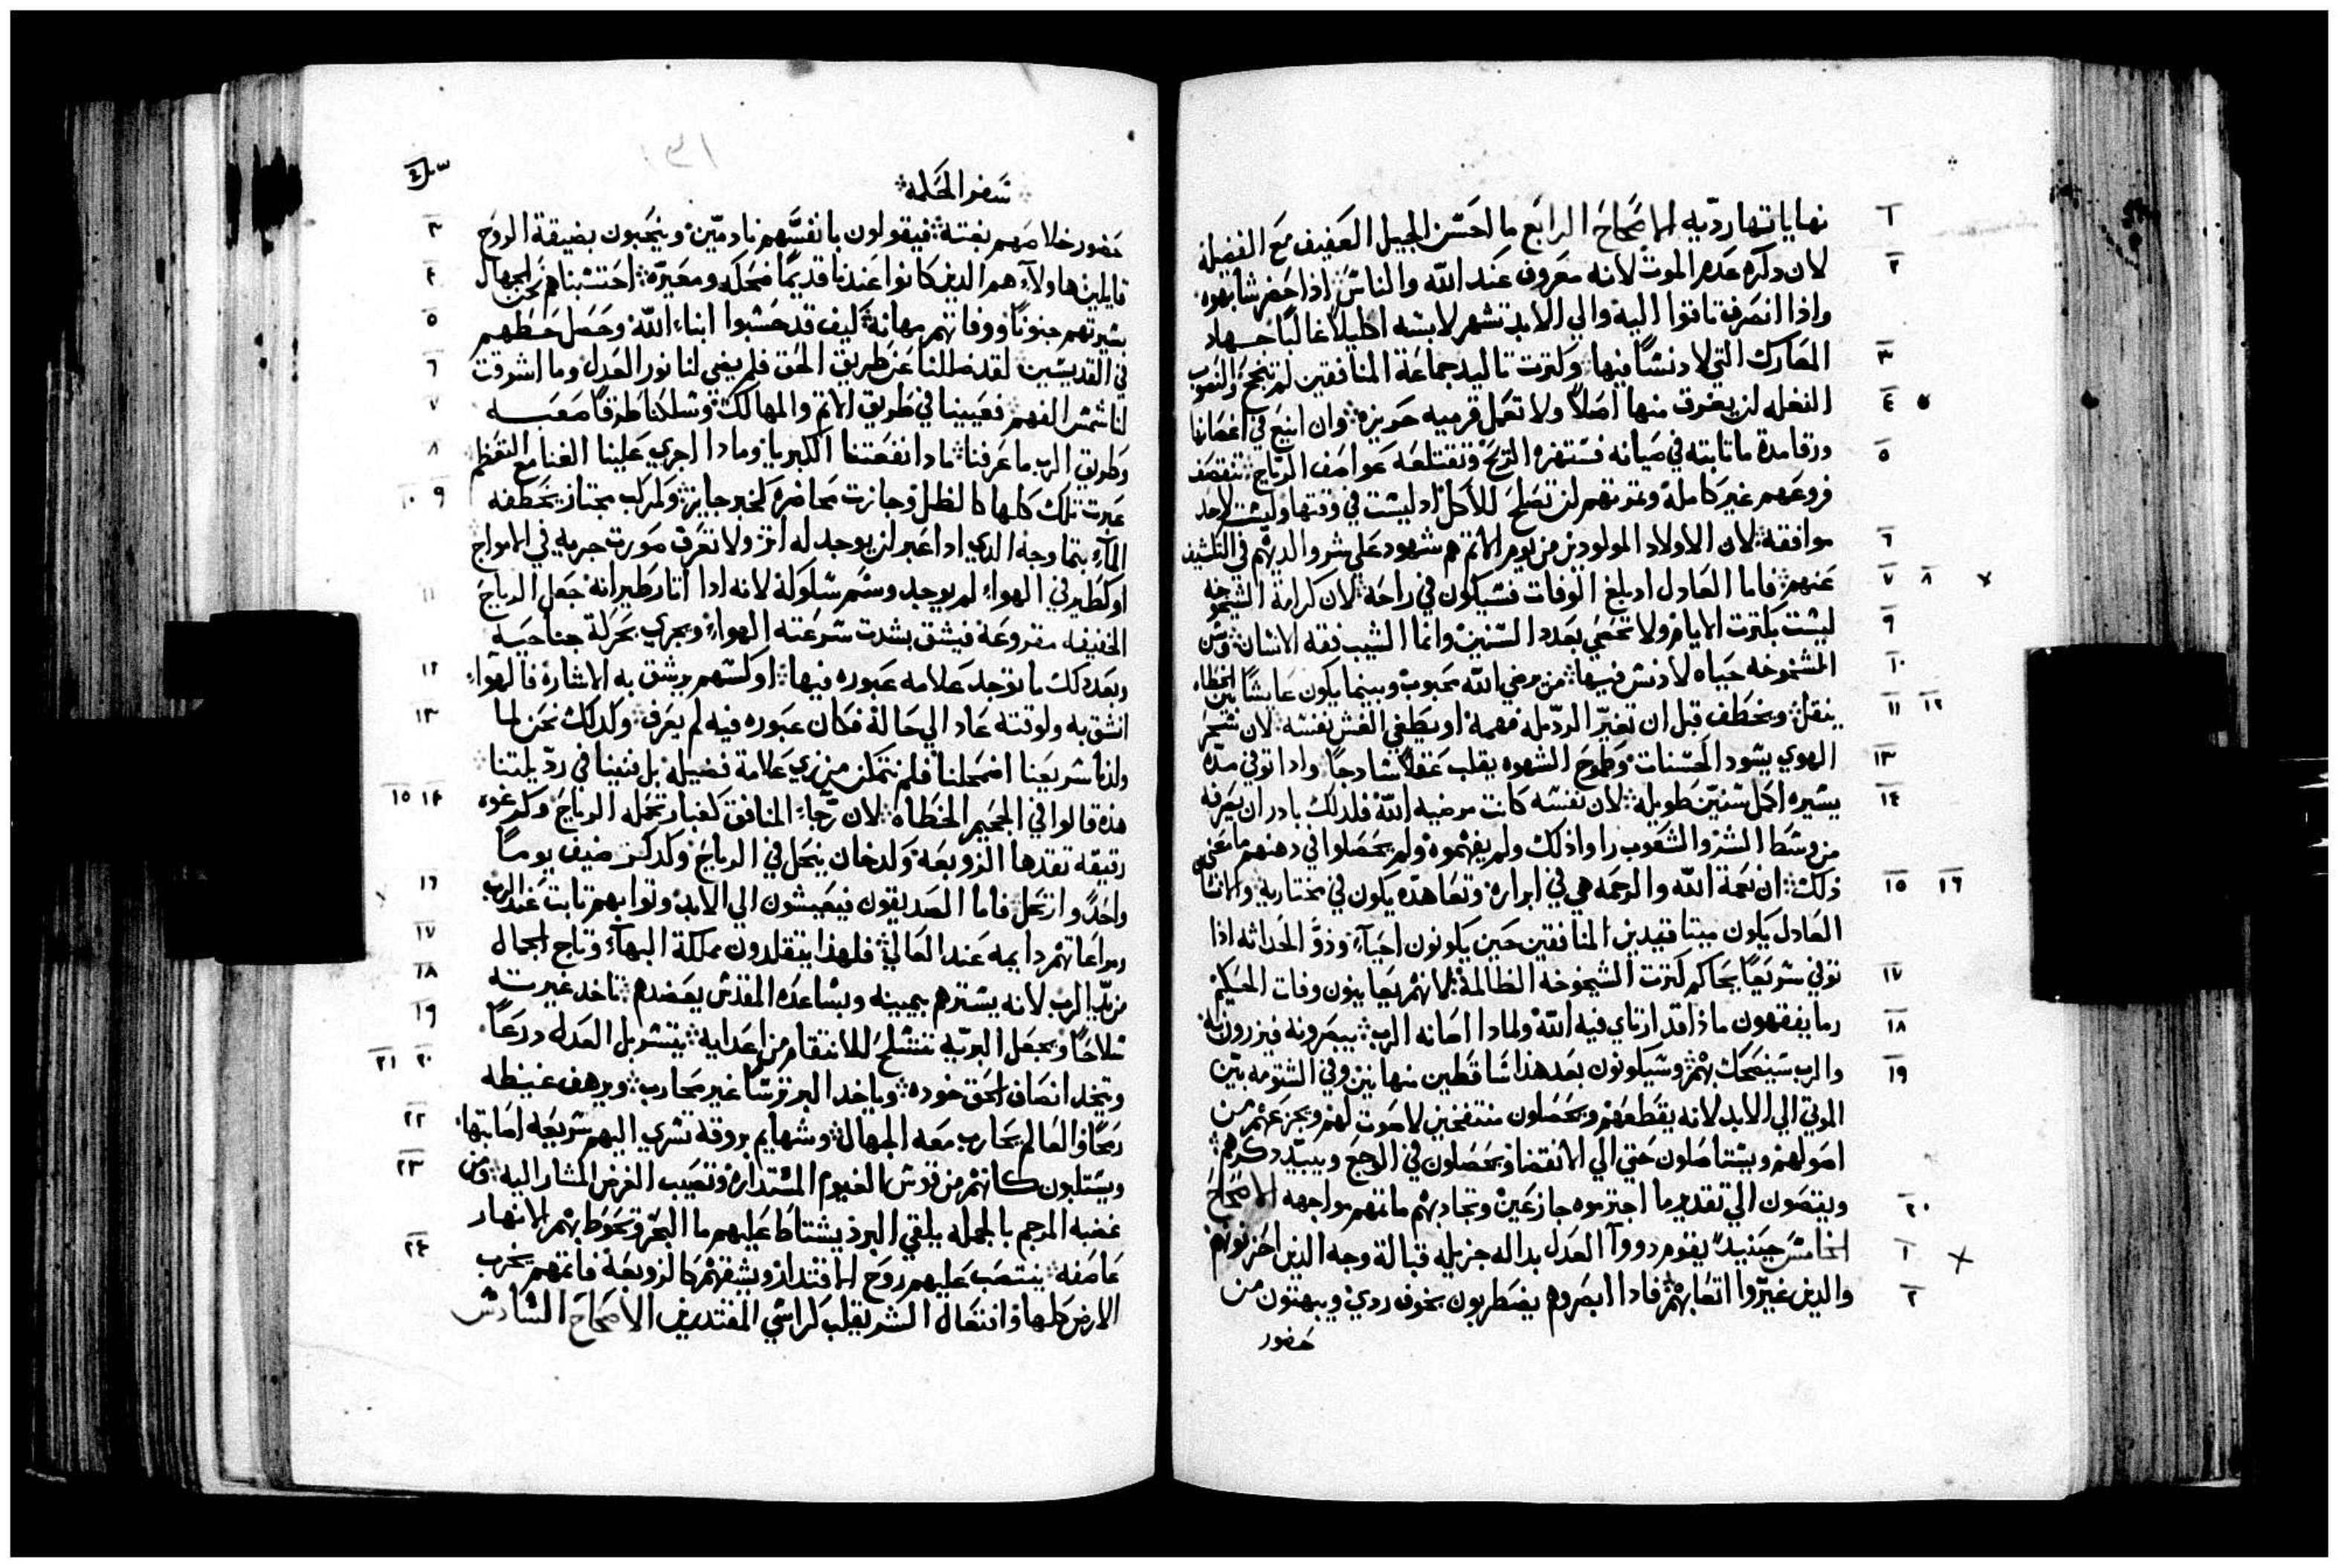 نهاياتها رديه الاصحاح الرابع ما احسن الجيل العفيف مع الفضيله
لان دكره عدم الموت لانه معروف عند الله والناس اذا حضر شابهوه
واذا انصرف تاقوا اليه والي الابد تشهر لابسه اكليلا غالبا جهاد
المعارك التي لا دنسا فيها وكترت تاليد جماعة المنافقين لم تنجح والنصوب
النغله لن يغرق منها اصلا ولا تعمل قرميه حويزه وان انبع في اغصانها
ورقا مدة ما تابته في صيانه فستهزه الريح وتقتلعه عواصف الرياح تنقصف
فروعهم غير كامله وتمرتهم لن تصلح للأكل اد ليست في وقتها وليست لاحد
موافقة لان الاولاد المولودين من نوم الاتم هم شهود علي شر والديهم في التلشيف
عنهم فاما العادل اد بلغ الوفات فسيكون في راحة لان كرامة الشيخوخه
ليست بكترت الايام ولا تحصي بعدد السنين وانما الشيب فقه الانسان وسن
الشخوخه حياه لا دنس فيها من يرضي الله محبوب وبينما يكون عايشا بين الخطاه
ينقل ويخطف قبل ان تغير الرديله فهمه او يطغي الغش نفسه لان سحر
الهوي يسود الحسنات وطموح الشهوه يقلب عقلا سادجا واذا توفي مدة
يسيره اكمل سنين طويله لان نفسه كانت مرضيه الله فلدلك بادر ان يعرفه
من وسط الشر والشعوب راوا ذلك ولم يفهموه ولم يحصلوا في دهنهم ما معني
ذلك ان نعمة الله والرحمه هي في ابراره وتعاهده يكون في مختاريه والانسان
العادل يكون ميتا فيدين المنافقين حين يكونون احياء ودو الحداثه اذا
توفي سريعا يحاكم كترت الشيخوخه الظالمة لانهم يعاينون وفات الحكيم
وما يفقهون ماذا قد ارتاي فيه الله ولمادا اصانه الرب يبصرونه فيزرون به
والرب سيضحك بهم وسيكونون بعد هذا ساقطين مهانين وفي الشتومه بين
الموتي الي الابد لانه يقطعهم ويحصلون منتفخين لا صوت لهم ويجزعهم من
اصولهم ويستاصلون حتي الي الانقضا ويحصلون في الوجع ويبيد دكرهم
وينصون الي تقدير ما اجترموه جازعين وتجادبهم ماتمهم مواجهه الاصحاح
الخامس حينيد يقوم دووا العدل بداله جزيله قبالة وجه الذين احزنوهم
والذين غيروا اتعابهم فادا ابصروهم يضطربون بخوف ردي ويبهتون من
حضور
سفر الحكمة
حضور خلاصهم بغتة فيقولون بانفسهم نادمين وينحبون بضيقة الروح
قايلين هاولاء هم الدين كانوا عندنا قديما ضحكه ومعيره احتسبنا نحن الجهال
سيرتهم جنونا ووفاتهم مهانة كيف قد حسبوا ابناء الله وحصل حظهم
في القديسين لقد ضللنا عن طريق الحق فلم يضي لنا نور العدل وما اشرقت
لنا شمس الفهم فعيينا في طريق الاتم والمهالك وسلكنا طرقا صعبه
وطريق الرب ما عرفنا مادا نفعتنا الكبريا وما دا اجري علينا الغنا مع التعظم
عبرت تلك كلها كالظل وجازت محاضرة كخبر جايز وكمركب مجتاز يخطفه
الماء بتماوجه الدي اداعبر لن يوجد له اتر ولا تعرف صورت جريه في الامواج
او كطير في الهواء لم يوجد وسم سلوكه لانه ادا اتار طيرانه جعل الرياح
الخفيفه مقروعة فيشق بشدت سرعته الهواء ويجري بحركة جناحيه
وبعد دلك ما توجد علامه عبوره فيها او كسهم يرشق به الاشارة فالهواء
انشق به ولوقته عاد الي حالة فكان عبوره فيه لم يعرف ولدلك نحن لما
ولدنا سريعا اضمحلنا فلم نتمكن من نري علامة فضيله بل فنينا في رديلتنا
هذه قالوا في الجحيم الخطاه لان رجاء المنافق كغبار تحمله الرياح وكرغوه
رقيقه تقدها الزوبعه وكدخان ينحل في الرياح وكدكر ضيف يوما
واحدا وارتحل فاما الصديقون فيعيشون الي الابد وتوابهم تابت عند الرب
ومراعاتهم دايمه عند العالي فلهذا يتقلدون مملكة البهاء وتاج الجمال
من يد الرب لانه يسترهم بيمينه وبساعده المقدس يعضدهم تاخد غيرته
سلاحا ويجعل البريه تتسلح للانتقام من اعدايه يتسربل العدل درعا
ويتخد انصاف الحق خوده وياخد البر ترسا غير محارب ويرهف غيظه
رمحا والعالم يحارب معه الجهال وسهايم بروقه تسري اليهم سريعه اصابتها
ويستلبون كانهم من قوس الغيوم المستداره وتصيب الغرض المشار اليه ومن
غضبه المرجم بالجمله يلقي البرد يستاط عليهم ما البحر وتحوط بهم الانهار
عاصفه ينتصب عليهم روح الاقتدار ويشقهم كالزوبعة فاتمهم يخرب
الارض كلها وانتحال الشر يقلب كراسي المقتدرين الاصحاح السادس